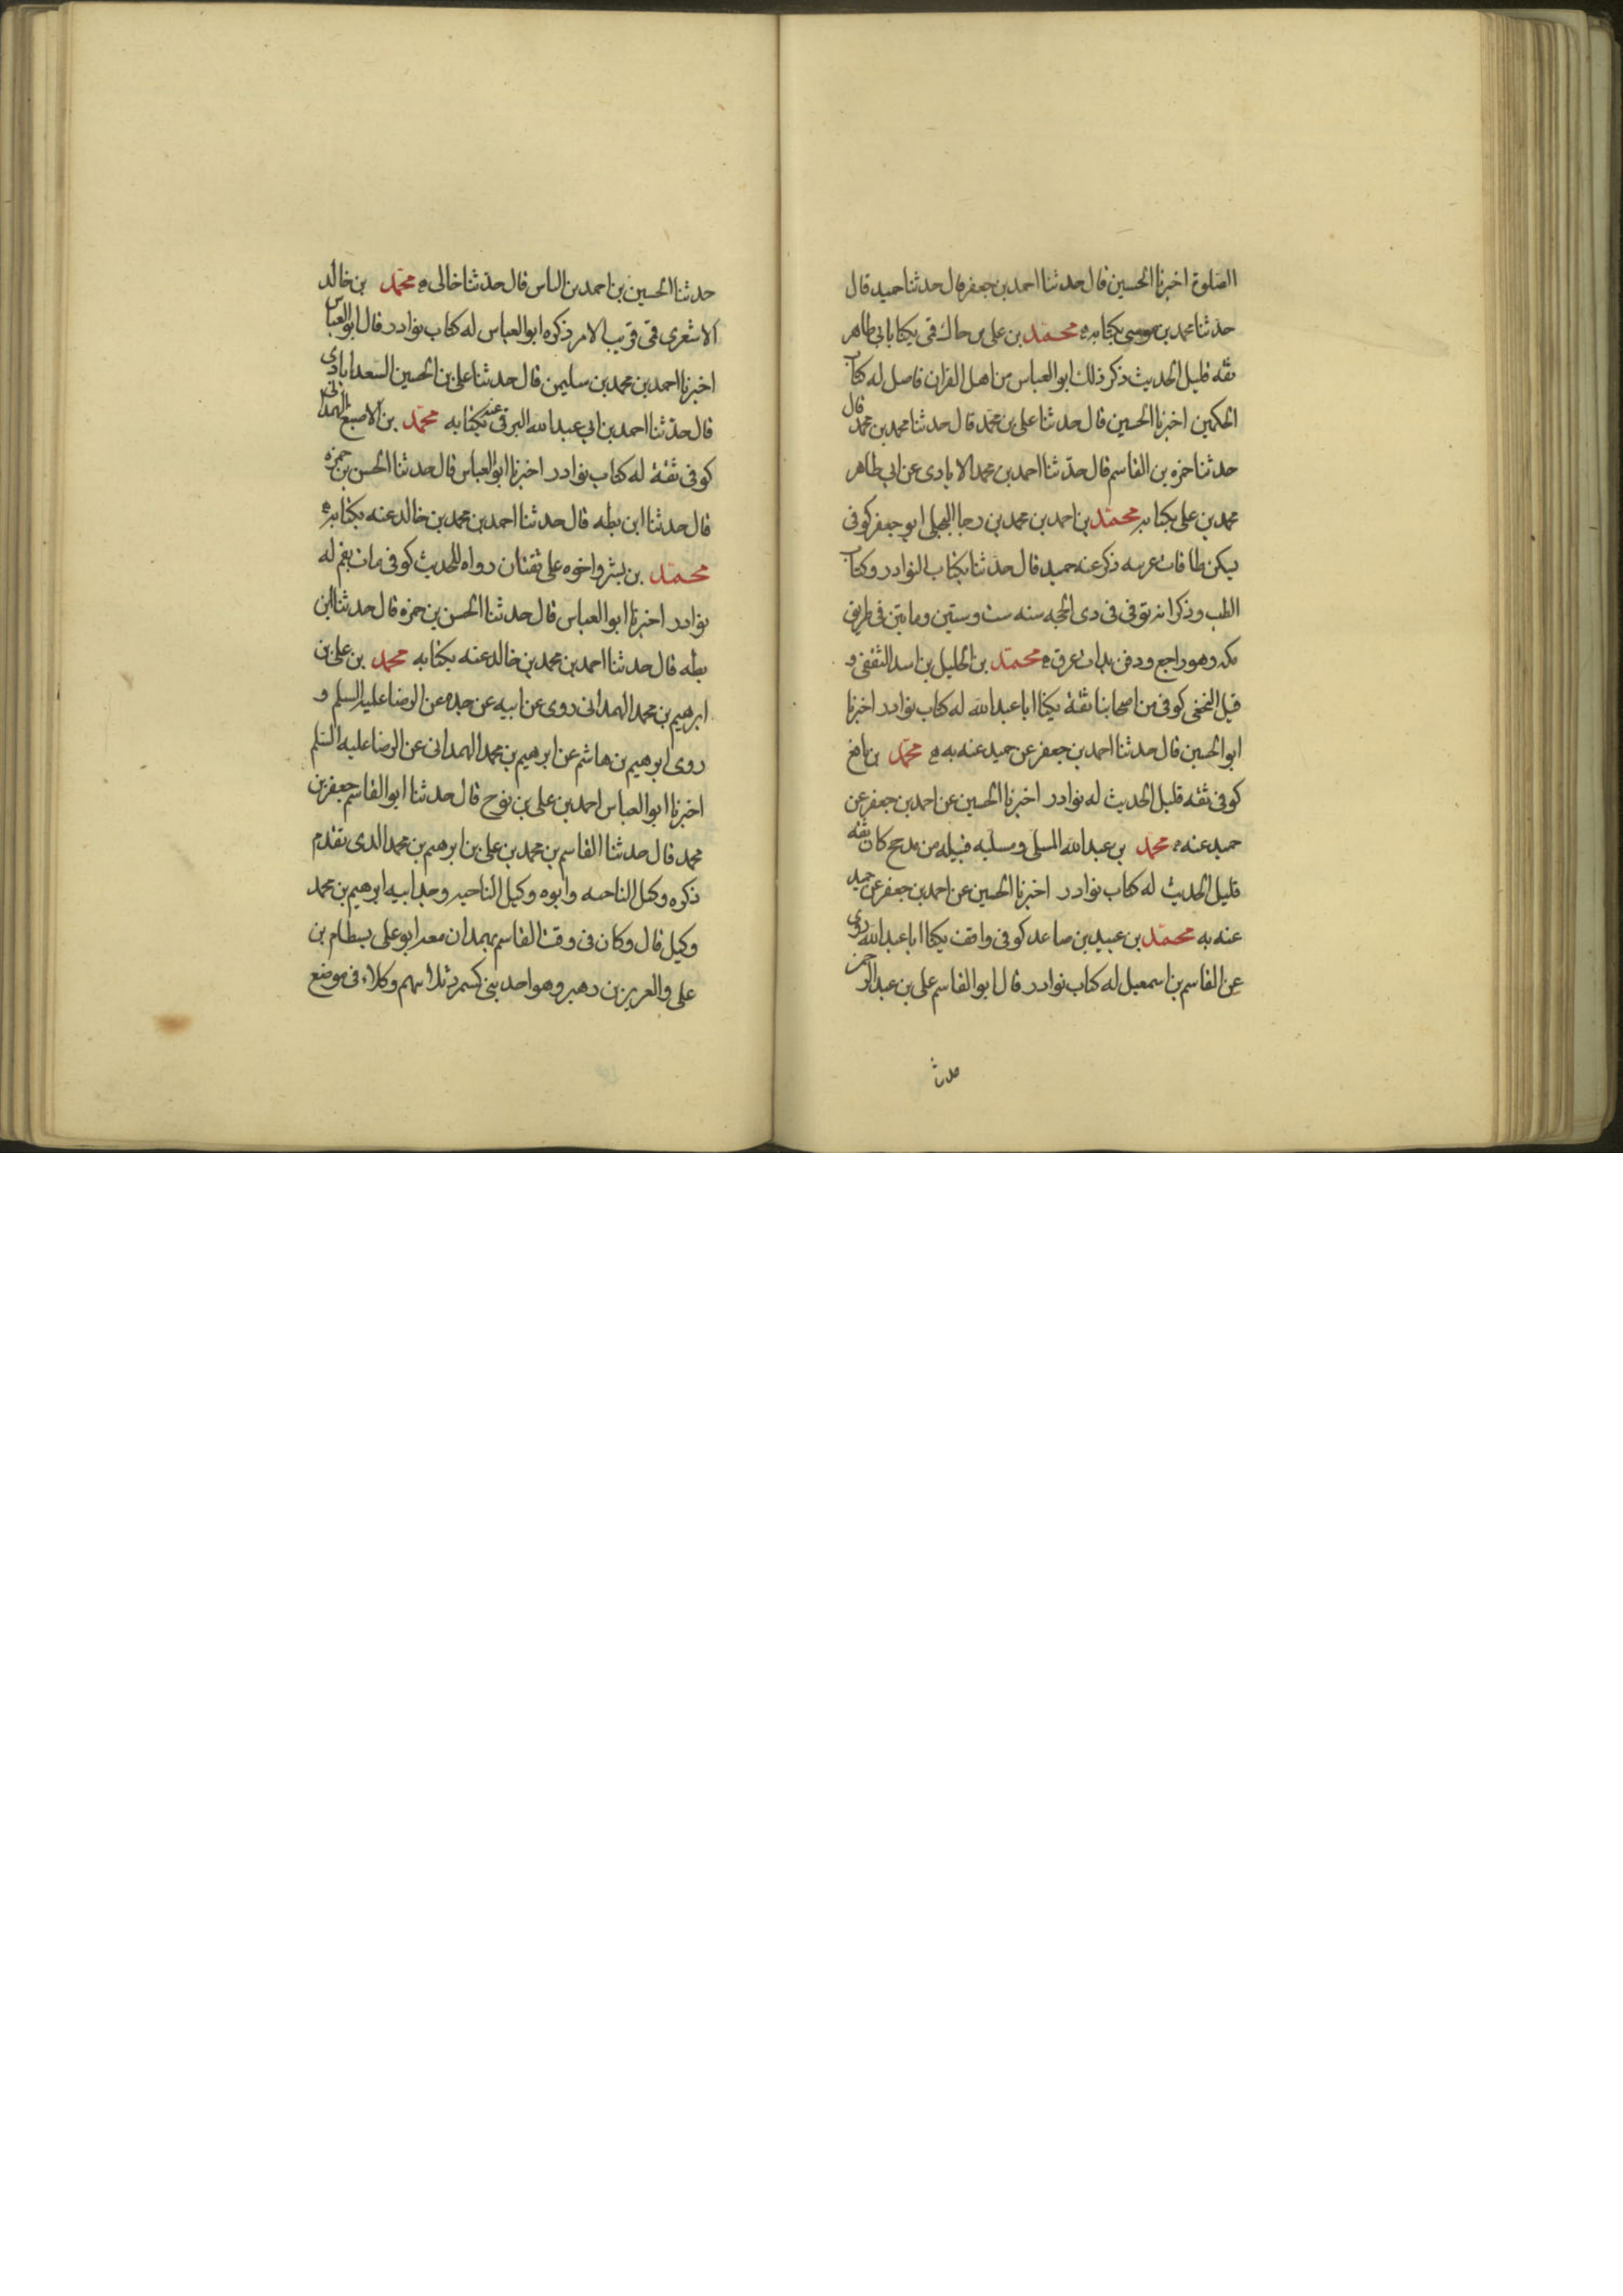 الصلوة اخبرنا الحسين قال حدثنا احمد بن جعفر قال حدثنا حميد قال
حدثنا محمد بن موسى بكتابه محمد بن على بن حاك قمى يكنا بابى طاهر
ثقه قليل الحديث ذكر ذلك ابو العباس من اهل القران فاصل له كتاب
الحكمين اخبرنا الحسين قال حدثنا على بن محمد قال حدثنا محمد بن محمد قال
حدثنا حمزه بن القاسم قال حدثنا احمد بن محمد الابادى عن ابى طاهر
محمد بن على بكتابه محمد بن احمد بن محمد بن رجا البجلى ابو جعفر كوفى
يسكن طاقات عرينه ذكر عنه حميد قال حدثنا بكتاب النوادر وكتاب
الطب وذكر انه توفى فى دى الحجه سنه ست وستين ومايتين فى طريق
مكه وهو راجع ودفن بذات عرق محمد بن الخليل بن اسد الثقفى و
قيل النخعى كوفى من اصحابنا ثقة يكنا ابا عبد الله له كتاب نوادر اخبرنا
ابو الحسين قال حدثنا احمد بن جعفر عن حميد عنه به محمد بن نافع
كوفى ثقه قليل الحديث له نوادر اخبرنا الحسين عن احمد بن جعفر عن
حميد عنه محمد بن عبد الله المسلى ومسليه قبيله من مدحج كان ثقه
قليل الحديث له كتاب نوادر اخبرنا الحسين عن احمد بن جعفر عن حميد
عنه به محمد بن عبيد بن صاعد كوفى واقف يكنا ابا عبد الله روى
عن القاسم بن اسمعيل له كتاب نوادر قال ابو القاسم على بن عبد الرحمن
حدث
حدثنا الحسين بن احمد بن الياس قال حدثنا خالى محمد بن خالد
الاشعرى قمى قريب الامر ذكره ابو العباس له كتاب نوادر قال ابو العباس
اخبرنا احمد بن محمد بن سليمن قال حدثنا على بن الحسين السعدابادى
قال حدثنا احمد بن ابى عبد الله البرقى عنه بكتابه محمد بن الاصبغ الهمدانى
كوفى ثقة له كتاب نوادر اخبرنا ابو العباس قال حدثنا الحسن بن حمزه
قال حدثنا ابن بطه قال حدثنا احمد بن محمد بن خالد عنه بكتابه
محمد بن بشر واخوه على ثقتان رواه للحديث كوفى مات بقم له
نوادر اخبرنا ابو العباس قال حدثنا الحسن بن حمزه قال حدثنا ابن
بطه قال حدثنا احمد بن محمد بن خالد عنه بكتابه محمد بن على بن
ابرهيم بن محمد الهمدانى روى عن ابيه عن جده عن الرضا عليه السلم و
روى ابرهيم بن هاشم عن ابرهيم بن محمد الهمدانى عن الرضا عليه السلم
اخبرنا ابو العباس احمد بن على بن نوح قال حدثنا ابو القاسم جعفر بن
محمد قال حدثنا القاسم بن محمد بن على بن ابرهيم بن محمد الدى تقدم
ذكره وكيل الناحيه وابوه وكيل الناحيه وجد ابيه ابرهيم بن محمد
وكيل قال وكان فى وقت القاسم بهمدان معه ابو على بسطام بن
على والعزيز بن دهير وهو احد بنى كسمرد ثلاثهم وكلاء فى موضع